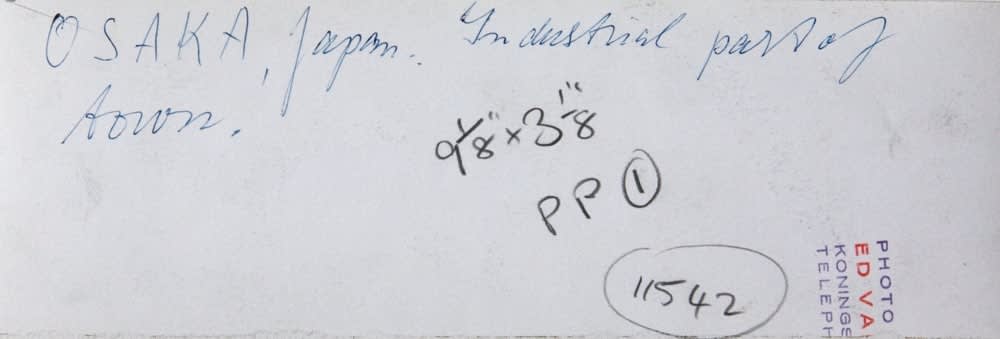 OSAKA, Japan. Industrial part of
town.
9 1/8" x 3 1/8"
PP 1
11542
PHOTO
ED VA
KONINGS
TELEPH